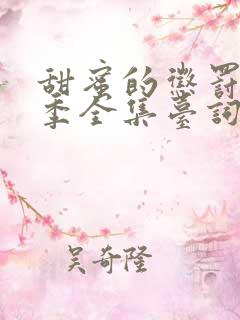 甜蜜的懲罰
季全集臺詞
吴奇隆